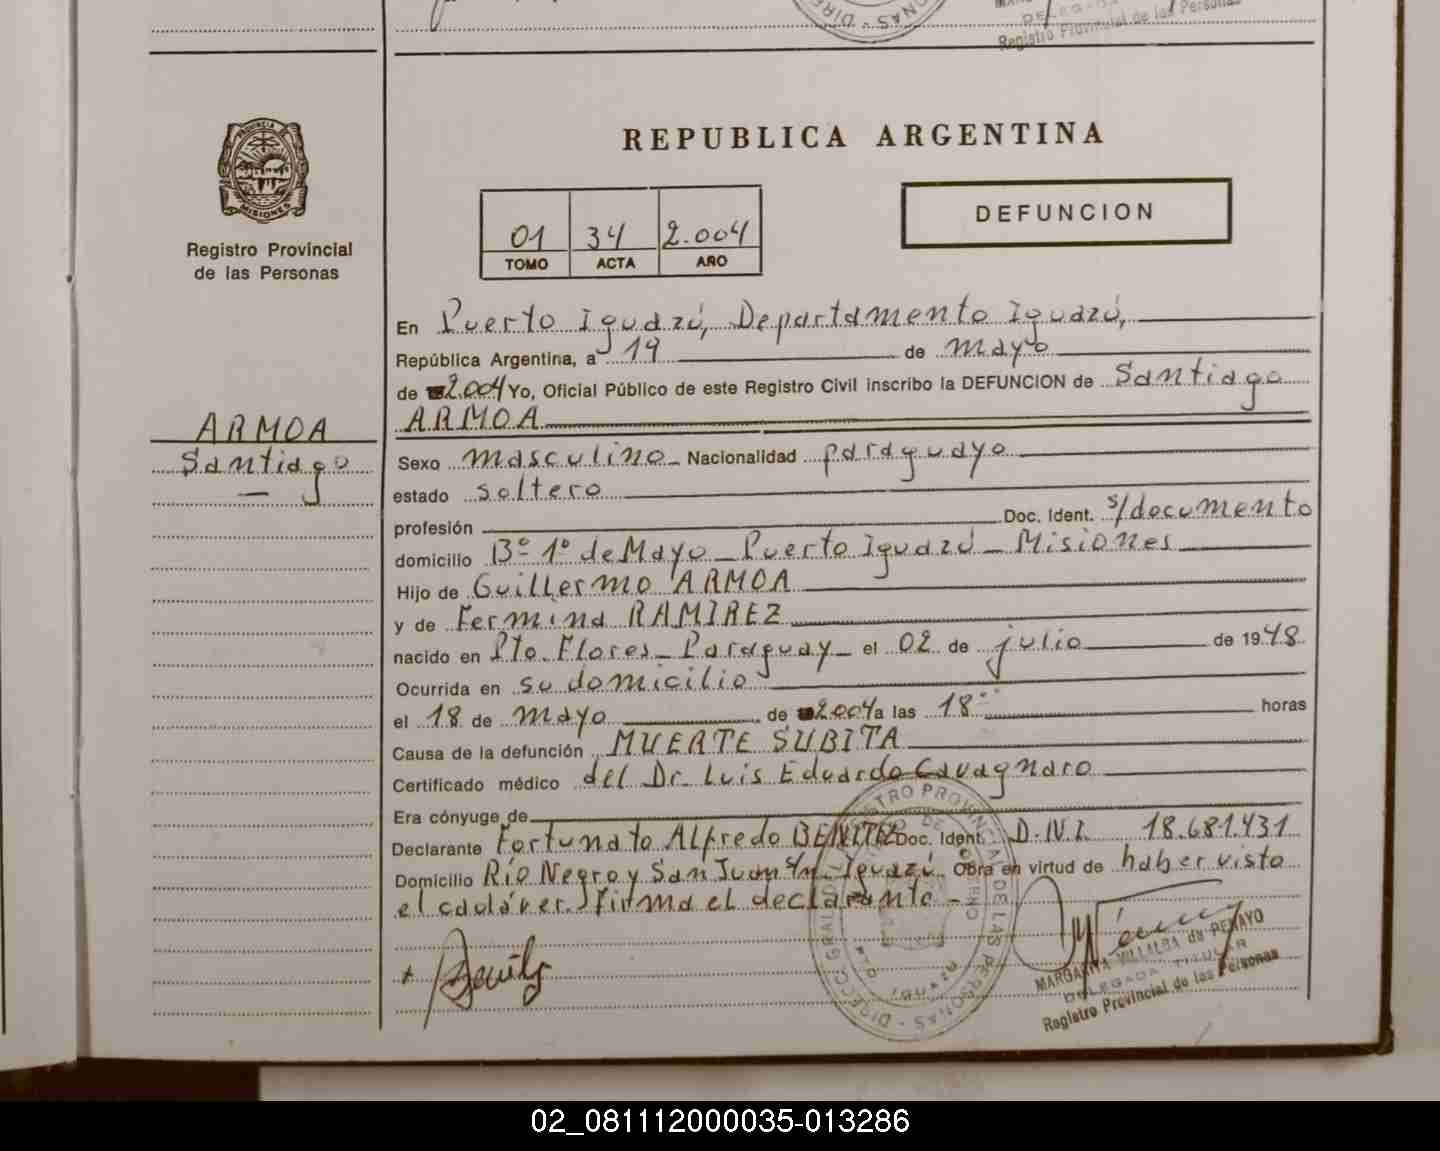 Registro Provincial de las Personas
PROVINCIA DE
MISIONES
Registro Provincial
de las Personas
REPUBLICA ARGENTINA
DEFUNCION
01 34 2.004
TOMO ACTA AÑO
En Puerto Iguazú, Departamento Iguazú,
República Argentina, a 19 de mayo
de 2.004 Yo, Oficial Público de este Registro Civil inscribo la DEFUNCION de Santiago
ARMOA
ARMOA
Santiago
Sexo masculino Nacionalidad paraguayo
estado soltero
profesión Doc. Ident. s/documento
domicilio Bº 1º de Mayo - Puerto Iguazú - Misiones
Hijo de Guillermo ARMOA
y de Fermina RAMIREZ
nacido en Pto. Flores - Paraguay - el 02 de julio de 1948
Ocurrida en su domicilio
el 18 de mayo de 2.004 a las 18 horas
Causa de la defunción MUERTE SUBITA
Certificado médico del Dr. Luis Eduardo Cavagnaro
Era cónyuge de
Declarante Fortunato Alfredo BENITEZ Doc. Ident. D.N.I. 18.681.431
Domicilio Río Negro y San Juan s/n. Iguazú Obra en virtud de haber visto
el cadáver. Firma el declarante -
MARGARITA VILLALBA de PENAYO
DELEGADA TITULAR
Registro Provincial de las Personas
02_081112000035-013286